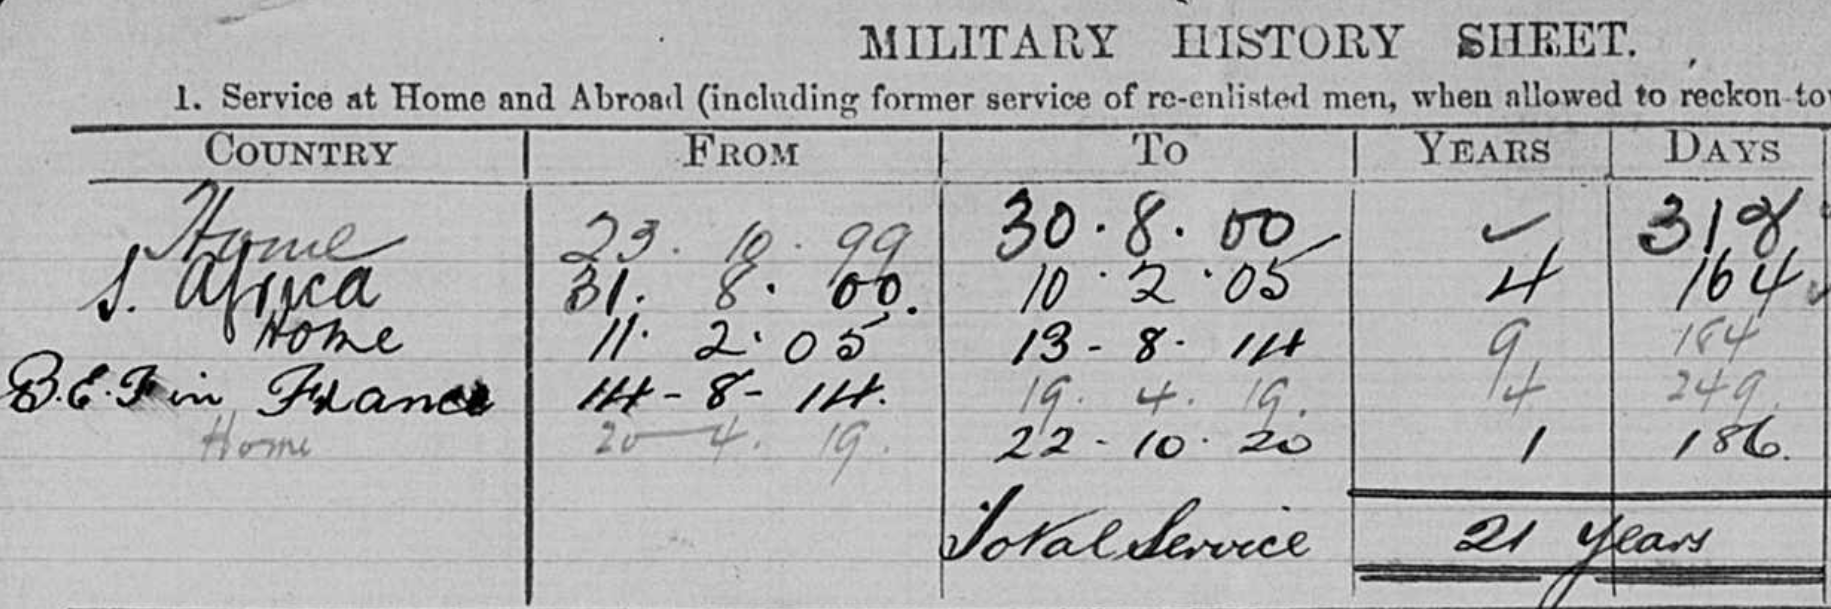 MILITARY HISTORY SHEET.
1. Service at Home and Abroad (including former service of re-enlisted men, when allowed to reckon to
COUNTRY FROM TO YEARS DAYS
Home 23. 10. 99 30.8.00 ✓ 312
S. Africa 31. 8. 00. 10.2.05 4 164
Home 11. 2. 05 13-8-14 9 184
B.E.F in France 14-8-14. 19. 4. 19. 4 249.
Home 20-4. 19. 22-10-20 1 186.
Total Service 21 years